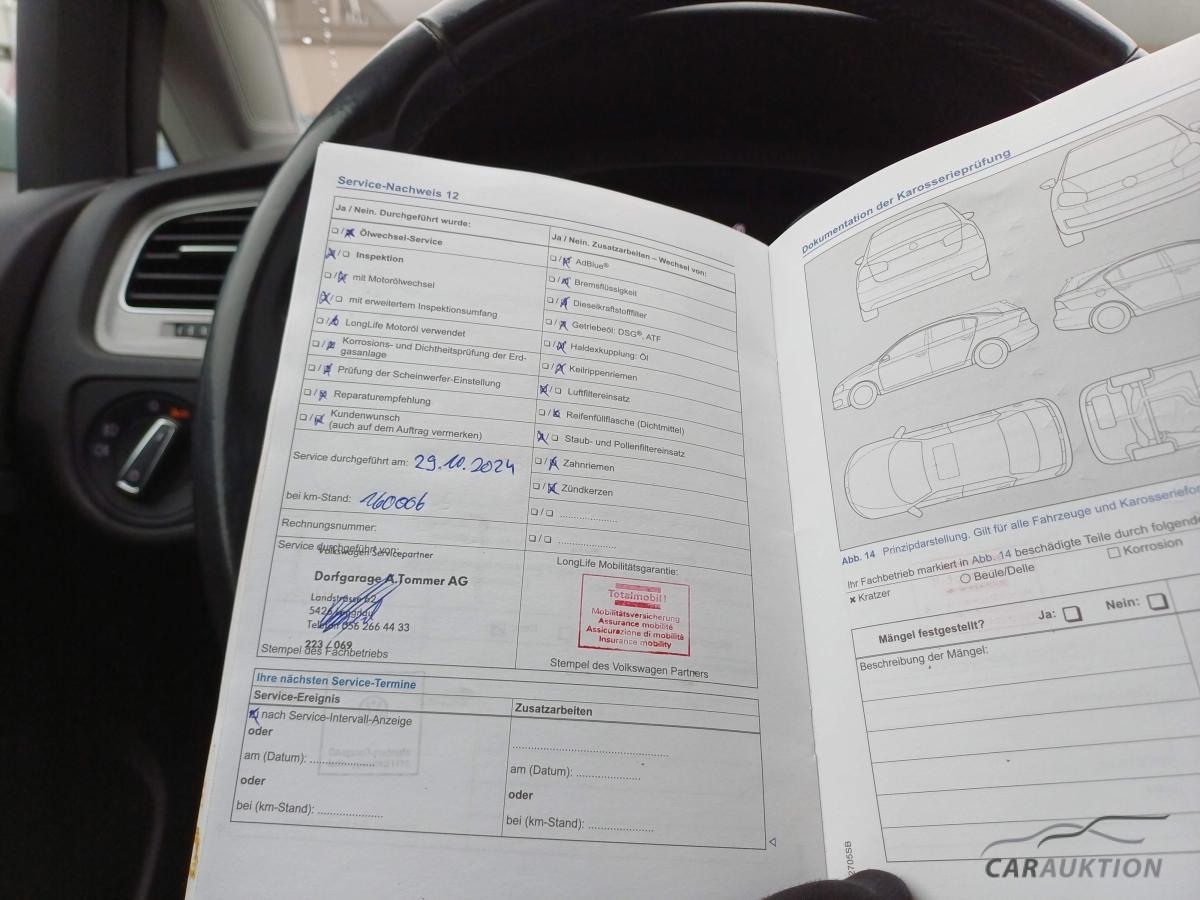 Service-Nachweis 12
Ja / Nein. Durchgeführt wurde:
Ölwechsel-Service
Inspektion
mit Motorölwechsel
mit erweitertem Inspektionsumfang
LongLife Motoröl verwendet
Korrosions- und Dichtheitsprüfung der Erd-
gasanlage
Prüfung der Scheinwerfer-Einstellung
Reparaturempfehlung
Kundenwunsch
(auch auf dem Auftrag vermerken)
Service durchgeführt am: 29.10.2024
bei km-Stand: 160006
Rechnungsnummer:
Service durchgeführt von:
Volkswagen Servicepartner
Dorfgarage A.Tommer AG
Landstrasse 62
5426
Telefon 056 266 44 33
223 / 069
Stempel des Fachbetriebs
Ja / Nein. Zusatzarbeiten – Wechsel von:
AdBlue®
Bremsflüssigkeit
Dieselkraftstofffilter
Getriebeöl: DSG®, ATF
Haldexkupplung: Öl
Keilrippenriemen
Luftfiltereinsatz
Reifenfüllflasche (Dichtmittel)
Staub- und Pollenfiltereinsatz
Zahnriemen
Zündkerzen
LongLife Mobilitätsgarantie:
Totalmobil!
Mobilitätsversicherung
Assurance mobilité
Assicurazione di mobilità
Insurance mobility
Stempel des Volkswagen Partners
Ihre nächsten Service-Termine
Service-Ereignis
nach Service-Intervall-Anzeige
oder
am (Datum): ....................
oder
bei (km-Stand): ....................
Zusatzarbeiten
am (Datum): ....................
oder
bei (km-Stand): ....................
Dokumentation der Karosserieprüfung
Abb. 14 Prinzipdarstellung. Gilt für alle Fahrzeuge und
Ihr Fachbetrieb markiert in Abb. 14 beschädigte Teile durch
Kratzer
Beule/Delle
Korrosion
Mängel festgestellt? Ja: Nein:
Beschreibung der Mängel:
CARAUKTION